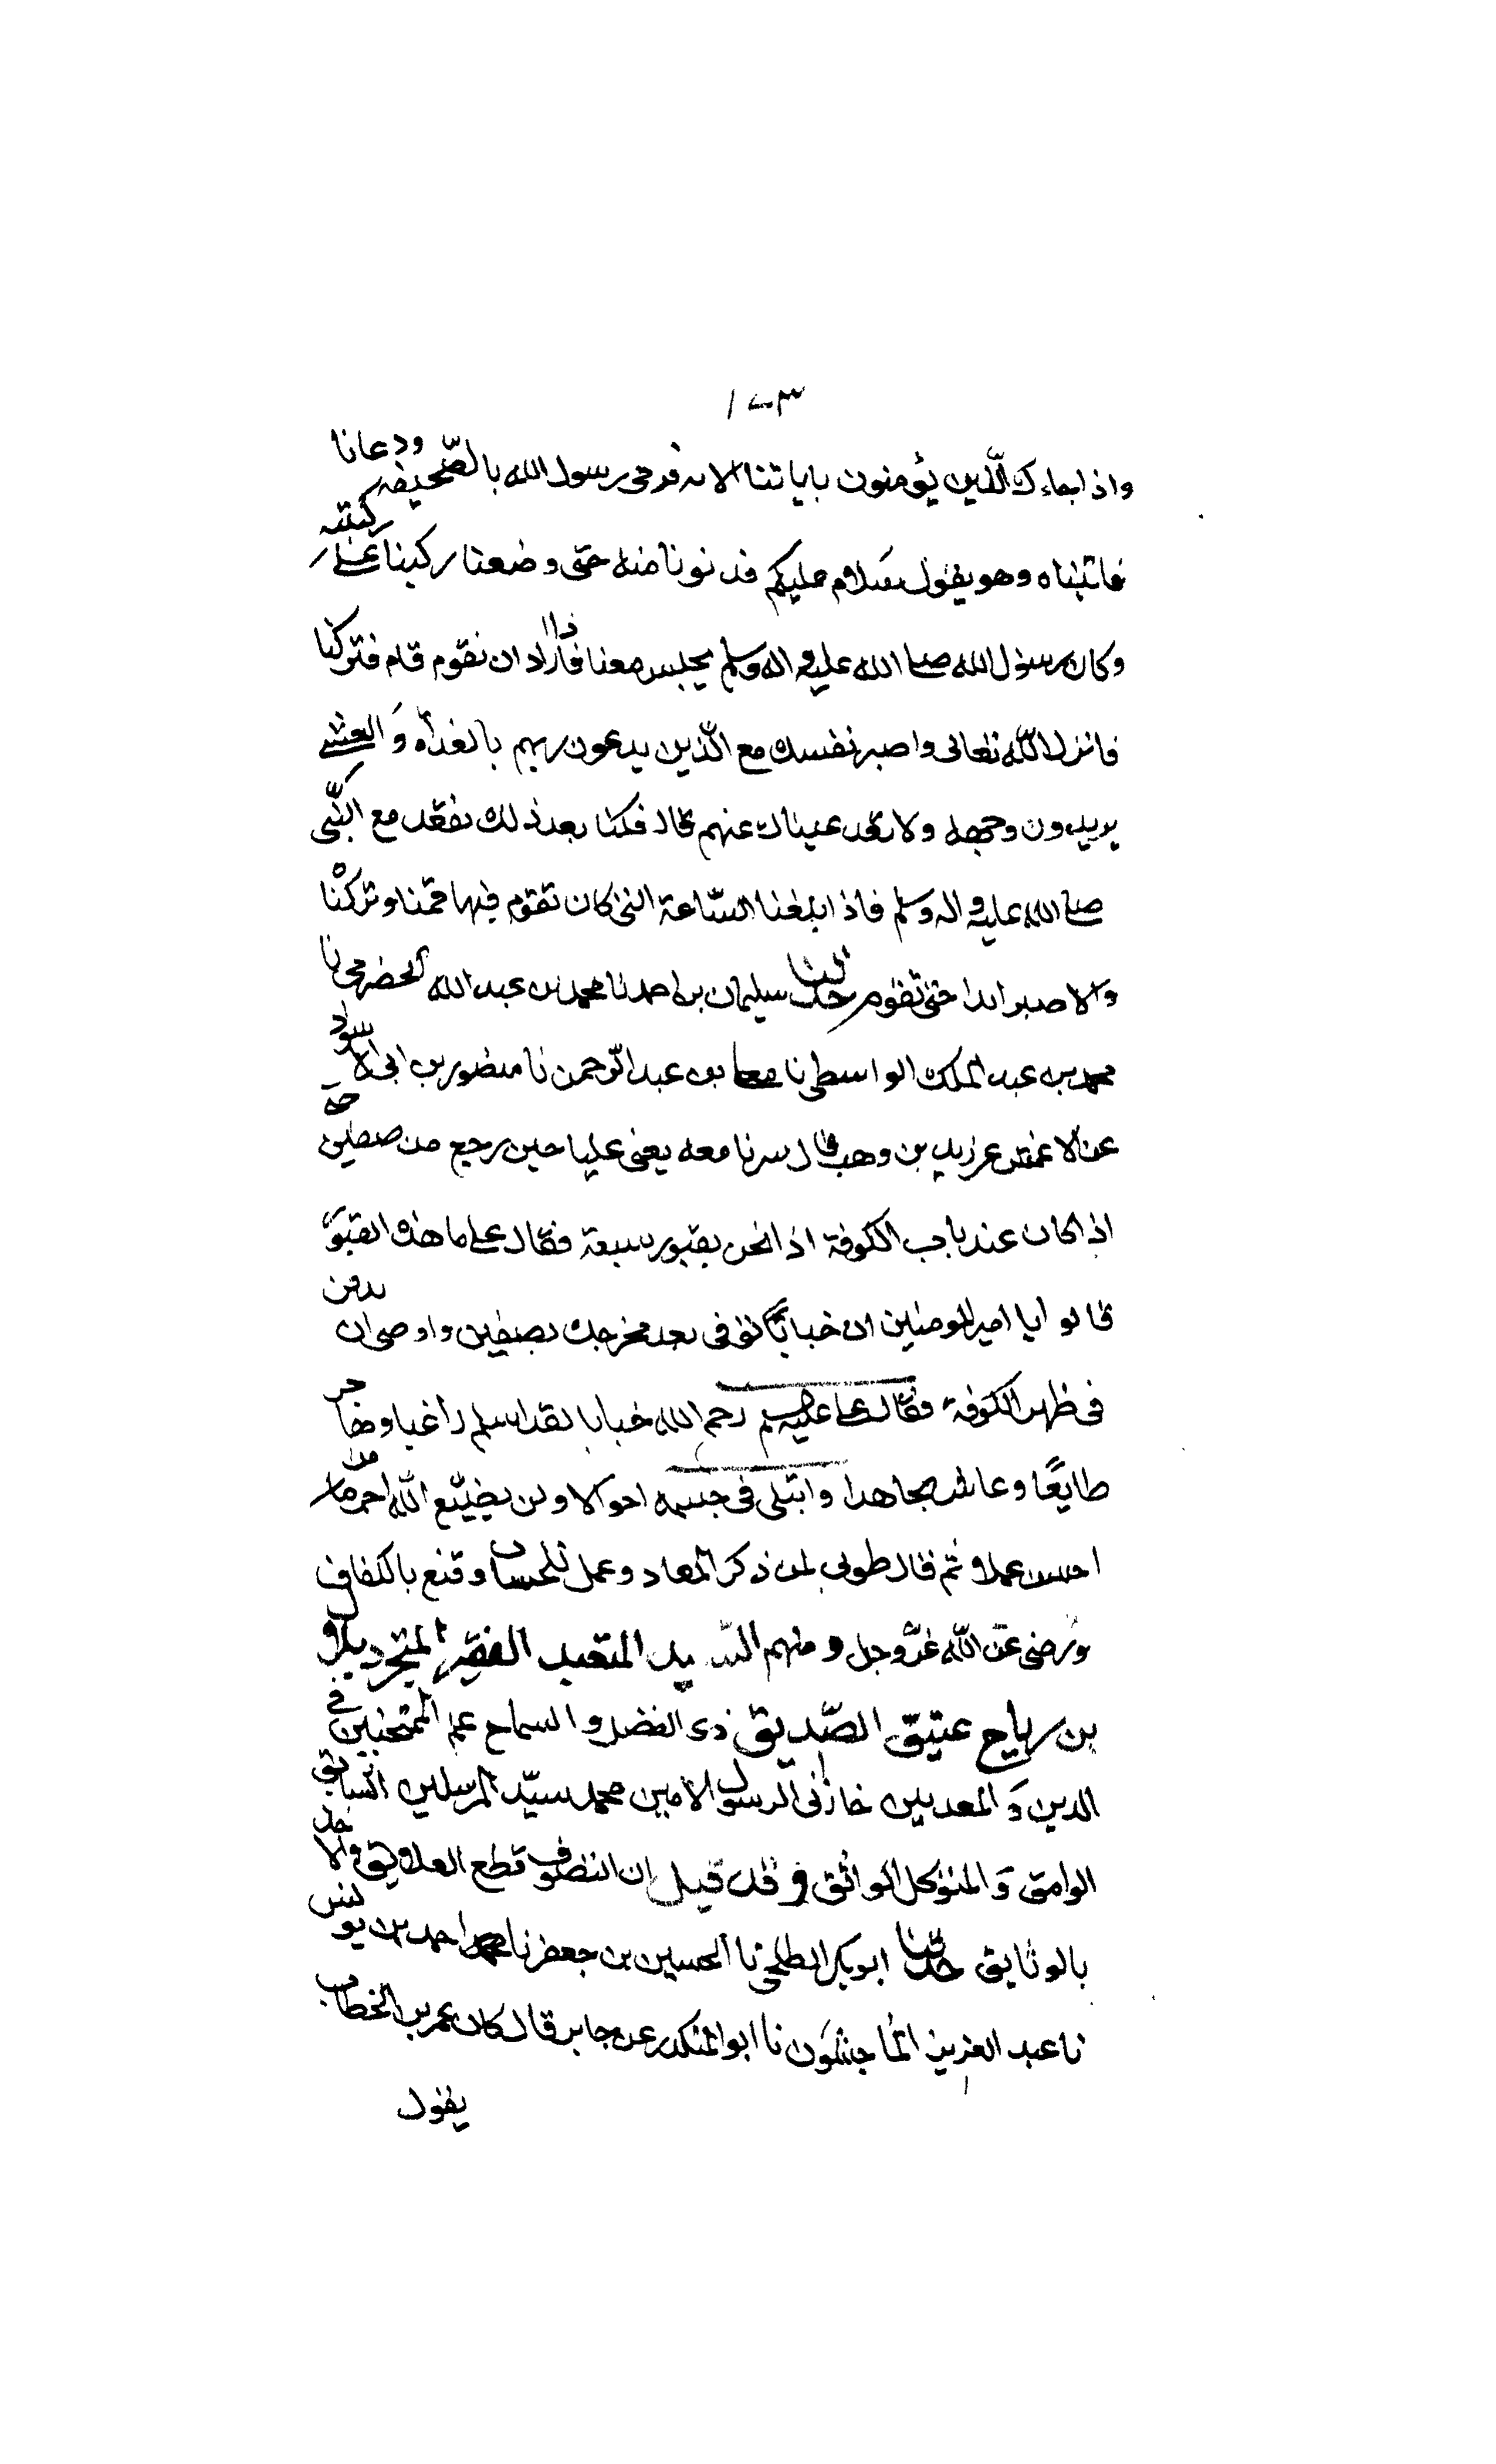 ١٠٣
واذا جاءك الّذين يؤمنون باياتنا الاية فرمى رسول الله بالصّحيفة ودعانا
فاتيناه وهو يقول سَلام عليكم فدنونا منه حتى وضعنا ركبنا على ركبته
وكان رسول الله صلى الله عليه واله وسلم يجلس معنا فاذا اراد ان نقوم قام فتركنا
فانزل الله تعالى واصبر نفسك مع الّذين يدعون ربهم بالغداة وَ العشى
يريدون وجهه ولا تعد عيناك عنهم قال فكنا بعد ذلك نقعد مع النّبى
صلى الله عليه واله وسلم فاذا بلغنا السّاعة التى كان تقوم فيها قمنا وتركْنا
والا صبر ابدا حتى تقوم حدثنا سليمان بن احمد نا محمد بن عبد الله الحضرمى نا
محمد بن عبد الملك الواسطى نا معلى بن عبد الرّحمن نا منصور بن ابى الاسود
عن الاعمش عن زيد بن وهب قال سرنا معه يعنى عليا حين رجع من صفين حتى
اذا كان عند باب الكوفة اذا نحن بقبور سبعة فقال على ما هذه القبوَر
قالوا يا امير المومنين ان خبابًا توفى بعد مخرجك بصفين واوصى ان يدفن
فى ظهر الكوفة فقال على عليهم رحم الله خبابا لقد اسلم راغبا وهاجر
طايعًا وعاش مجاهدا وابتلى فى جسمه احوالا ولن يضيّع الله اجر من
احسن عملا ثم قال طوبى لمن ذكر المعاد وعمل للحساب وقنع بالكفاف
ورضى عن الله عزّوجل ومنهم السيد المتعبد الفقير المتجرد بلال
بن رباح عتيق الصّديق ذى الفضل و السماح علم الممتحنين فى
الدين وَ المعدبين خازن الرسول الامين محمد سيّد المرسلين السابق
الوامق وَ المتوكل الواثق و قد قيل ان التصوف قطع العلايق والاخذ
بالوثايق حدّثنا ابو بكر الطلحى نا الحسين بن جعفر نا احمد بن يونس
نا عبد العزيز الماجشوَن نا ابو المنكدر عن جابر قال كان عمر بن الخطاب
يقول